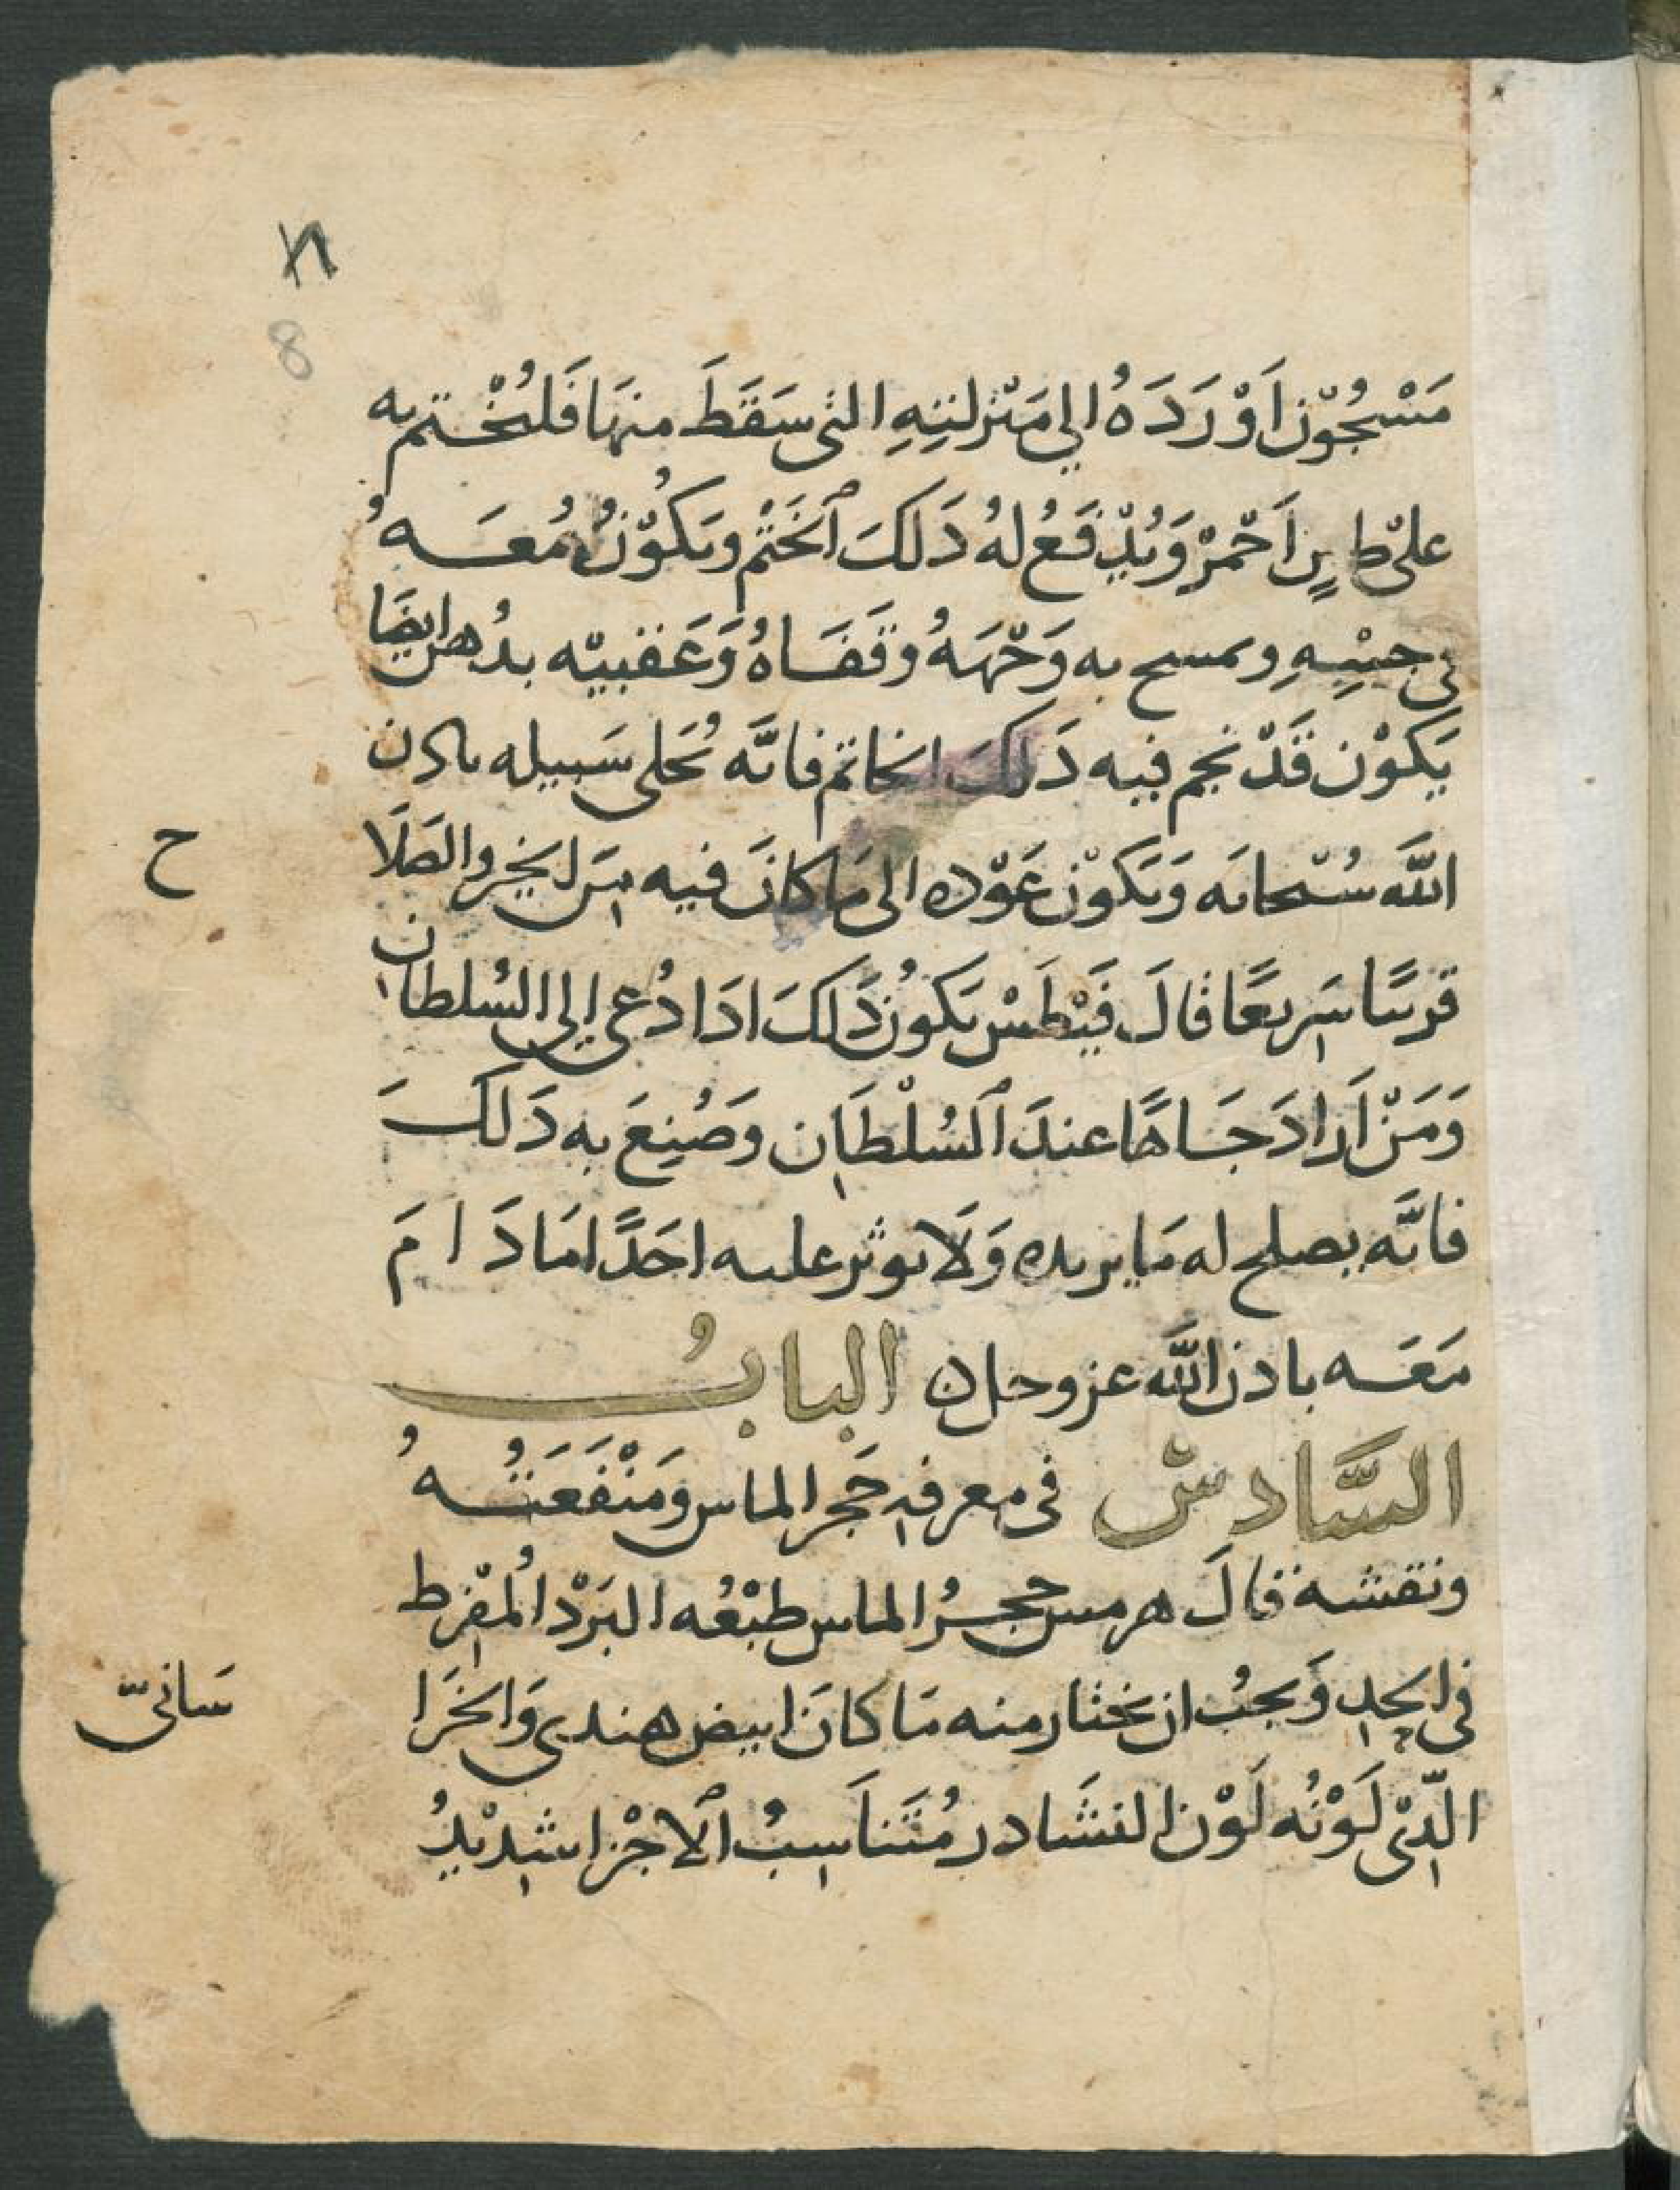 ٨
8
مَسْجُوْن اَوْ رَدَهُ الي مَنْزلتِهِ التى سَقَطَ منهَا فَليُخْتم به
على طين اَحْمَرْ وَيُدْفَعُ لهُ دَلكَ اَلخَتْم ويَكُوْنُ مُعَهُ
فى جيْبِهِ ويمسح به وَجْهَهُ وقَفَاهُ وَعَقبيْه بدُهن ايضًا
يَكوْن قَدْ نجم فيه دَلكَ الخاتم فانَّه يُخلى سَبيله بادن
اللّه سُبْحانَه وَيَكوْن عَوْده الى مَا كانَ فيه مِنَ الخير والصَلَا
ح
قريبًا سَرِيعًا قالَ فَيْطَسْ يَكوُن دَلكَ ادَا دُعى إلى السُلطان
وَمَنْ اَرادَ جَاهًا عندَ اَلسُلْطَان وَصُنِعَ به دَلكَ
فانَّه يصلح له مَا يريده وَلَا يوثر عليه احَدًا مَا دَامَ
مَعَه بادن اللّه عز وجل ن البابُ
السَّادسْ فى معرفهِ حَجَر الماس ومَنْفَعَتُهُ
ونقشه قالَ هرمس حجرُ الماس طبْعُه البَرْد اُلمفْرط
فى الحدِ وَيجبُ ان يختار منه مَا كانَ ابيض هندى وَالخَرَا
سَانىّ
الّدى لَوْنُه لَوْن النشَادر مُتَنَاسِبُ اَلاجْزا شِدْيدُ